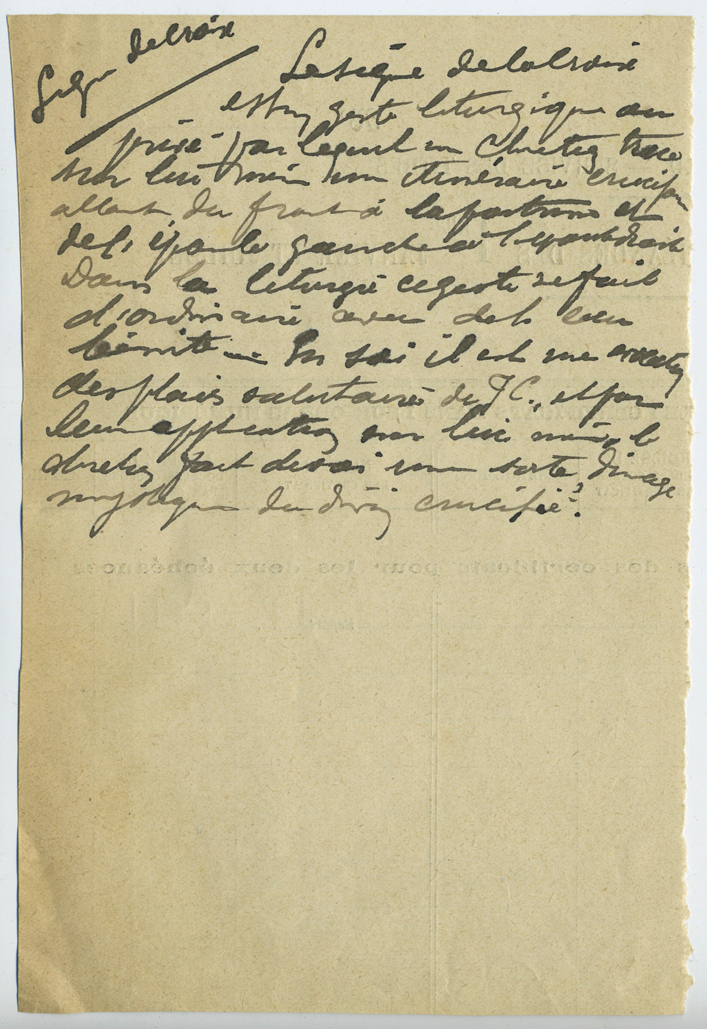 Signe de Croix
Le signe de la Croix
est un geste liturgique ou
privé par lequel un Chrétien trace
sur lui même un itinéraire cruciforme
allant du front à la poitrine et
de l'épaule gauche à l'épaule droite
Dans la liturgie ce geste se fait
d'ordinaire avec de l'eau
bénite. — En soi il est une évocation
des plaies salutaires de J.C., et par
leur application sur lui même, le
chrétien fait de soi une sorte d'image
mystique du divin crucifié.
des certificats pour les deux échéances